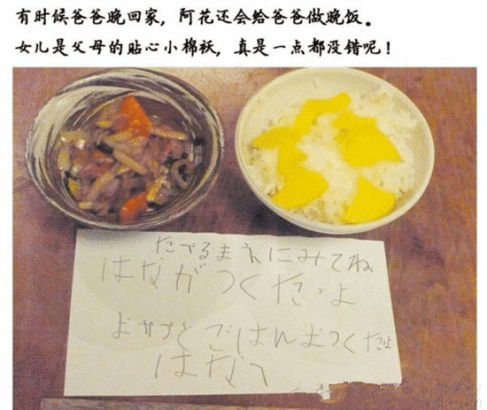 有时候爸爸晚回家，阿花还会给爸爸做晚饭。
女儿是父母的贴心小棉袄，真是一点都没错呢！
たべるまえにみてね
はながつくたっよ
おかずとごはんおつくたよ
はな